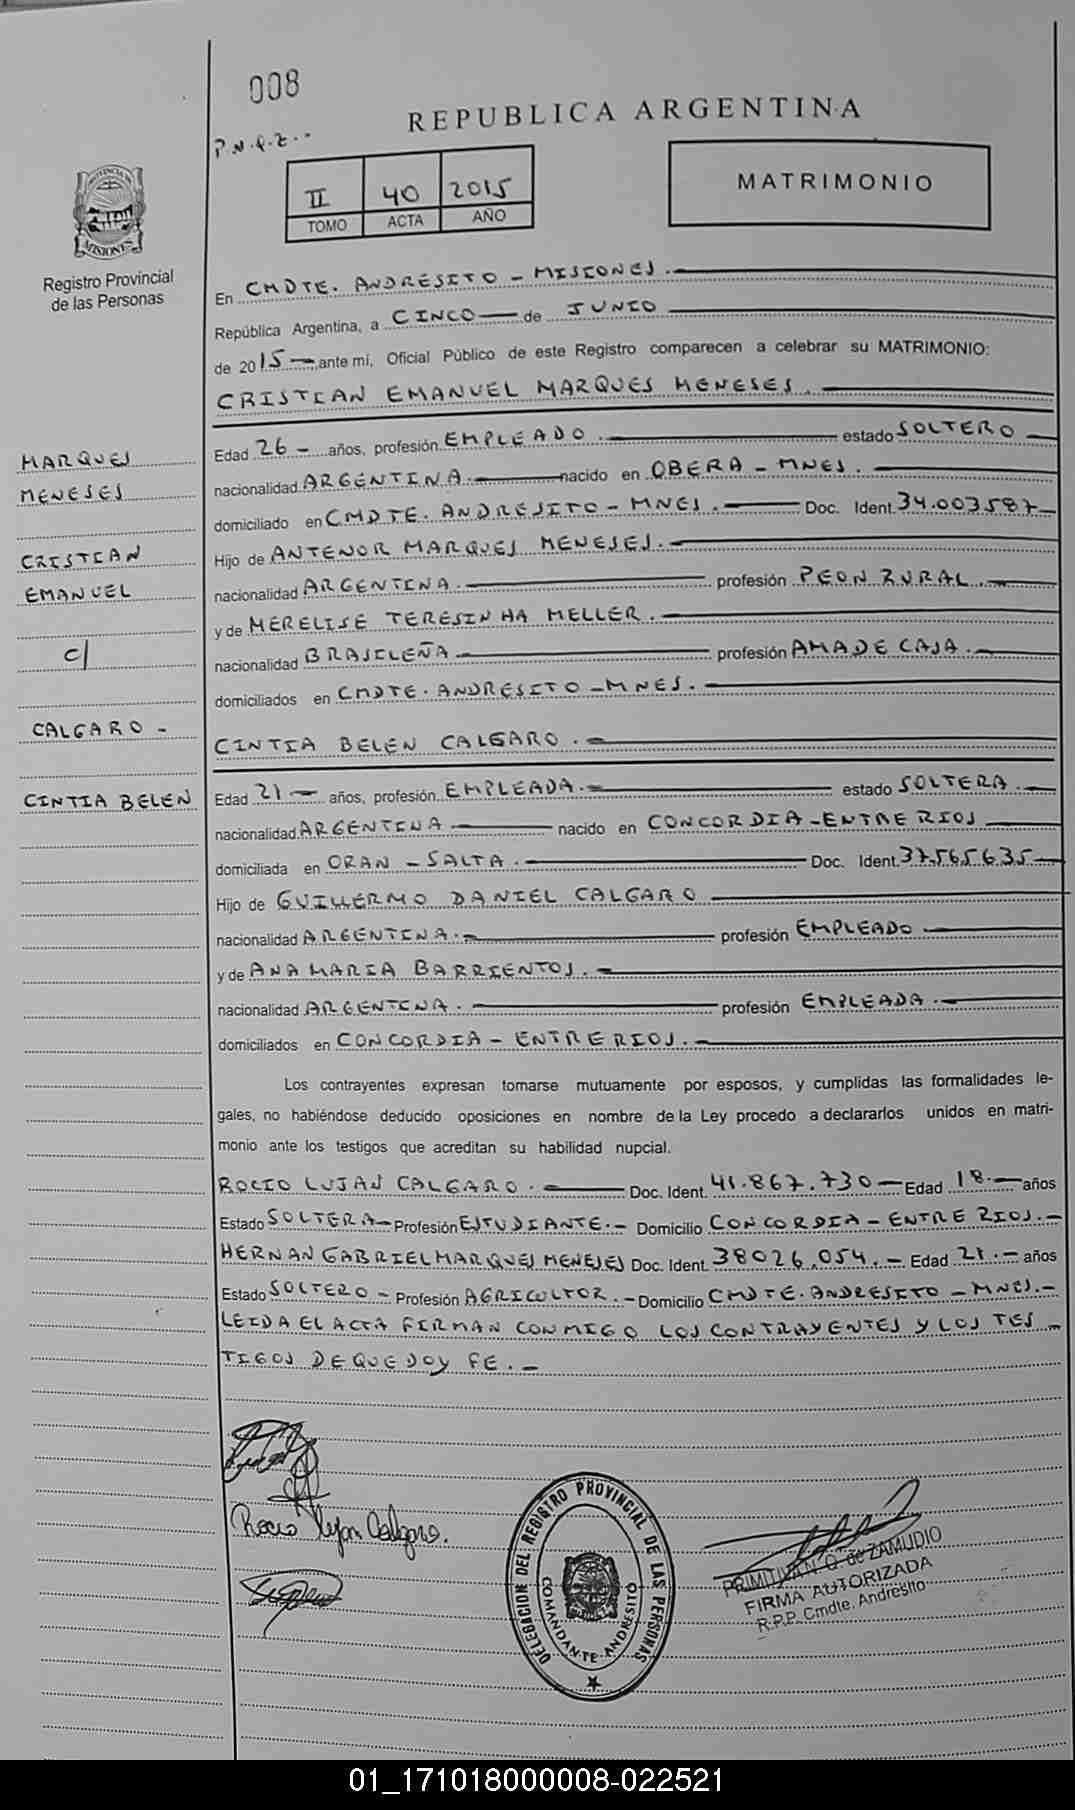 008
REPUBLICA ARGENTINA
P.N.Q.Z..
II 40 2015
TOMO ACTA AÑO
MATRIMONIO
MISIONES
Registro Provincial
de las Personas
En CMDTE. ANDRESITO - MISIONES.
República Argentina, a CINCO de JUNIO
de 2015 ante mi, Oficial Público de este Registro comparecen a celebrar su MATRIMONIO:
CRISTIAN EMANUEL MARQUES MENESES.
Edad 26 - años, profesión EMPLEADO. estado SOLTERO
nacionalidad ARGENTINA. nacido en OBERA - MNES.
domiciliado en CMDTE. ANDRESITO - MNES. Doc. Ident. 34.003587
Hijo de ANTENOR MARQUES MENESES.
nacionalidad ARGENTINA. profesión PEON RURAL.
y de MERELISE TERESINHA MELLER.
nacionalidad BRASILEÑA profesión AMA DE CASA.
domiciliados en CMDTE. ANDRESITO - MNES.
MARQUES
MENESES
CRISTIAN
EMANUEL
C/
CALGARO -
CINTIA BELEN
CINTIA BELEN CALGARO.
Edad 21 - años, profesión EMPLEADA. estado SOLTERA.
nacionalidad ARGENTINA nacido en CONCORDIA - ENTRE RIOS
domiciliada en ORAN - SALTA. Doc. Ident. 37.565.635
Hijo de GUILLERMO DANIEL CALGARO
nacionalidad ARGENTINA. profesión EMPLEADO
y de ANA MARIA BARRIENTOS.
nacionalidad ARGENTINA. profesión EMPLEADA.
domiciliados en CONCORDIA - ENTRE RIOS.
Los contrayentes expresan tomarse mutuamente por esposos, y cumplidas las formalidades le-
gales, no habiéndose deducido oposiciones en nombre de la Ley procedo a declararlos unidos en matri-
monio ante los testigos que acreditan su habilidad nupcial.
ROCIO LUJAN CALGARO. Doc. Ident. 41.867.730 Edad 18. años
Estado SOLTERA Profesión ESTUDIANTE. - Domicilio CONCORDIA - ENTRE RIOS. -
HERNAN GABRIEL MARQUES MENESES Doc. Ident. 38026.054. - Edad 21. - años
Estado SOLTERO - Profesión AGRICULTOR. - Domicilio CMDTE. ANDRESITO - MNES. -
LEIDA EL ACTA FIRMAN CONMIGO LOS CONTRAYENTES Y LOS TES
TIGOS DE QUE DOY FE. -
Rocio Lujan Calgaro.
DELEGACION DEL REGISTRO PROVINCIAL DE LAS PERSONAS
COMANDANTE ANDRESITO
PRIMITIVA N. O. de ZAMUDIO
FIRMA AUTORIZADA
R.P.P. Cmdte. Andresito
01_171018000008-022521